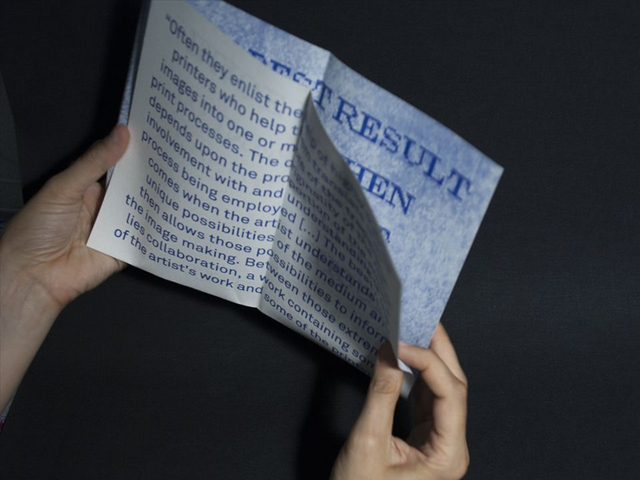 "Often they enlist the
printers who help t
images into one or m
print processes. The d
depends upon the pro
involvement with and understan
process being employed [...] The bes
comes when the artist understands
unique possibilities of the medium an
then allows those possibilities to inform
the image making. Between those extrem
lies collaboration, a work containing som
of the artist's work and some of the prin
BEST RESULT
WHEN